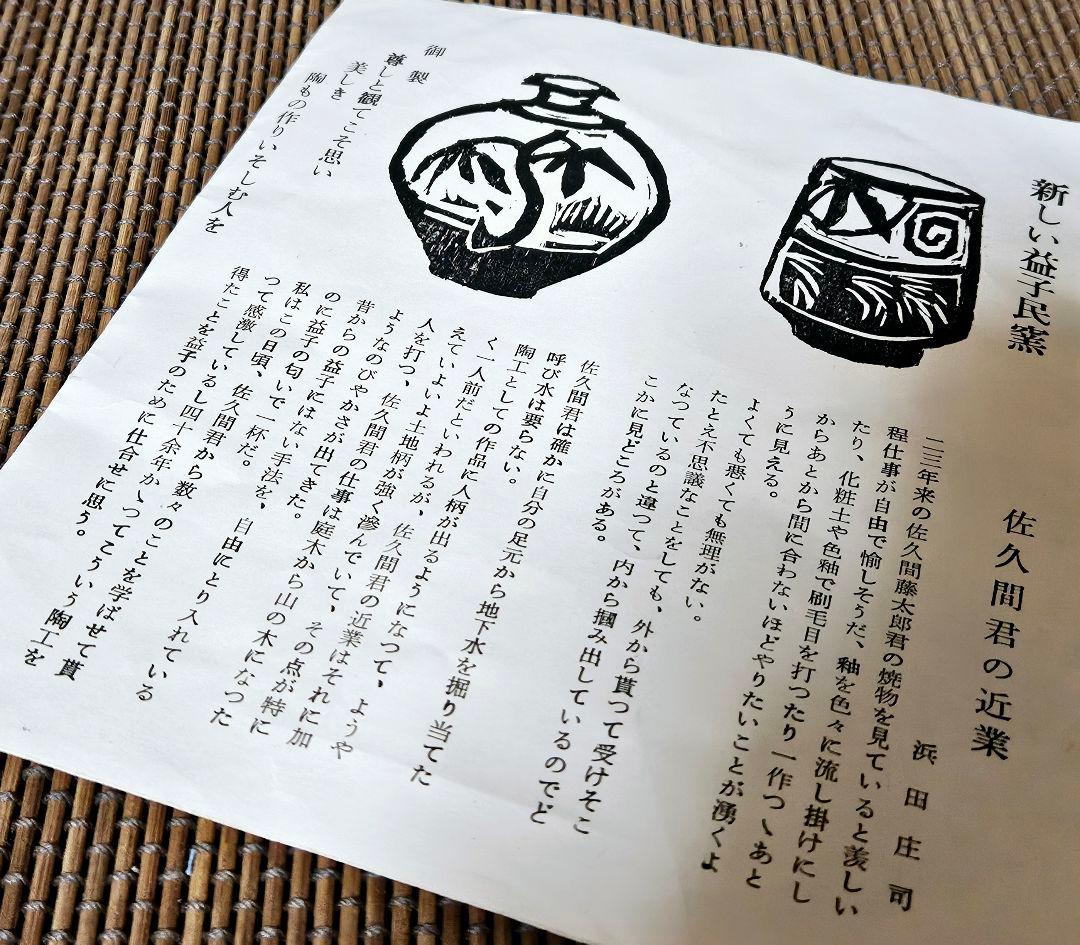 新しい益子民窯
佐久間君の近業
浜田庄司
二三年来の佐久間藤太郎君の焼物を見ていると羨しい
程仕事が自由で愉しそうだ、釉を色々に流し掛けにし
たり、化粧土や色釉で刷毛目を打つたり一作つゝあと
からあとから間に合わないほどやりたいことが湧くよ
うに見える。
よくても悪くても無理がない。
たとえ不思議なことをしても、外から貰つて受けそこ
なつているのと違つて、内から摑み出しているのでど
こかに見どころがある。
佐久間君は確かに自分の足元から地下水を掘り当てた
呼び水は要らない。
陶工としての作品に人柄が出るようになって、ようや
く一人前だといわれるが、佐久間君の近業はそれに加
えていよいよ土地柄が強く滲んでいて、その点が特に
人を打つ、佐久間君の仕事は庭木から山の木になつた
ようなのびやかさが出てきた。
昔からの益子にはない手法を、自由にとり入れている
のに益子の匂いで一杯だ。
私はこの日頃、佐久間君から数々のことを学ばせて貰
つて感激しているし四十余年かゝつてこういう陶工を
得たことを益子のために仕合せに思う。
御製
尊しと観てこそ思い
美しき
陶もの作りいそしむ人を